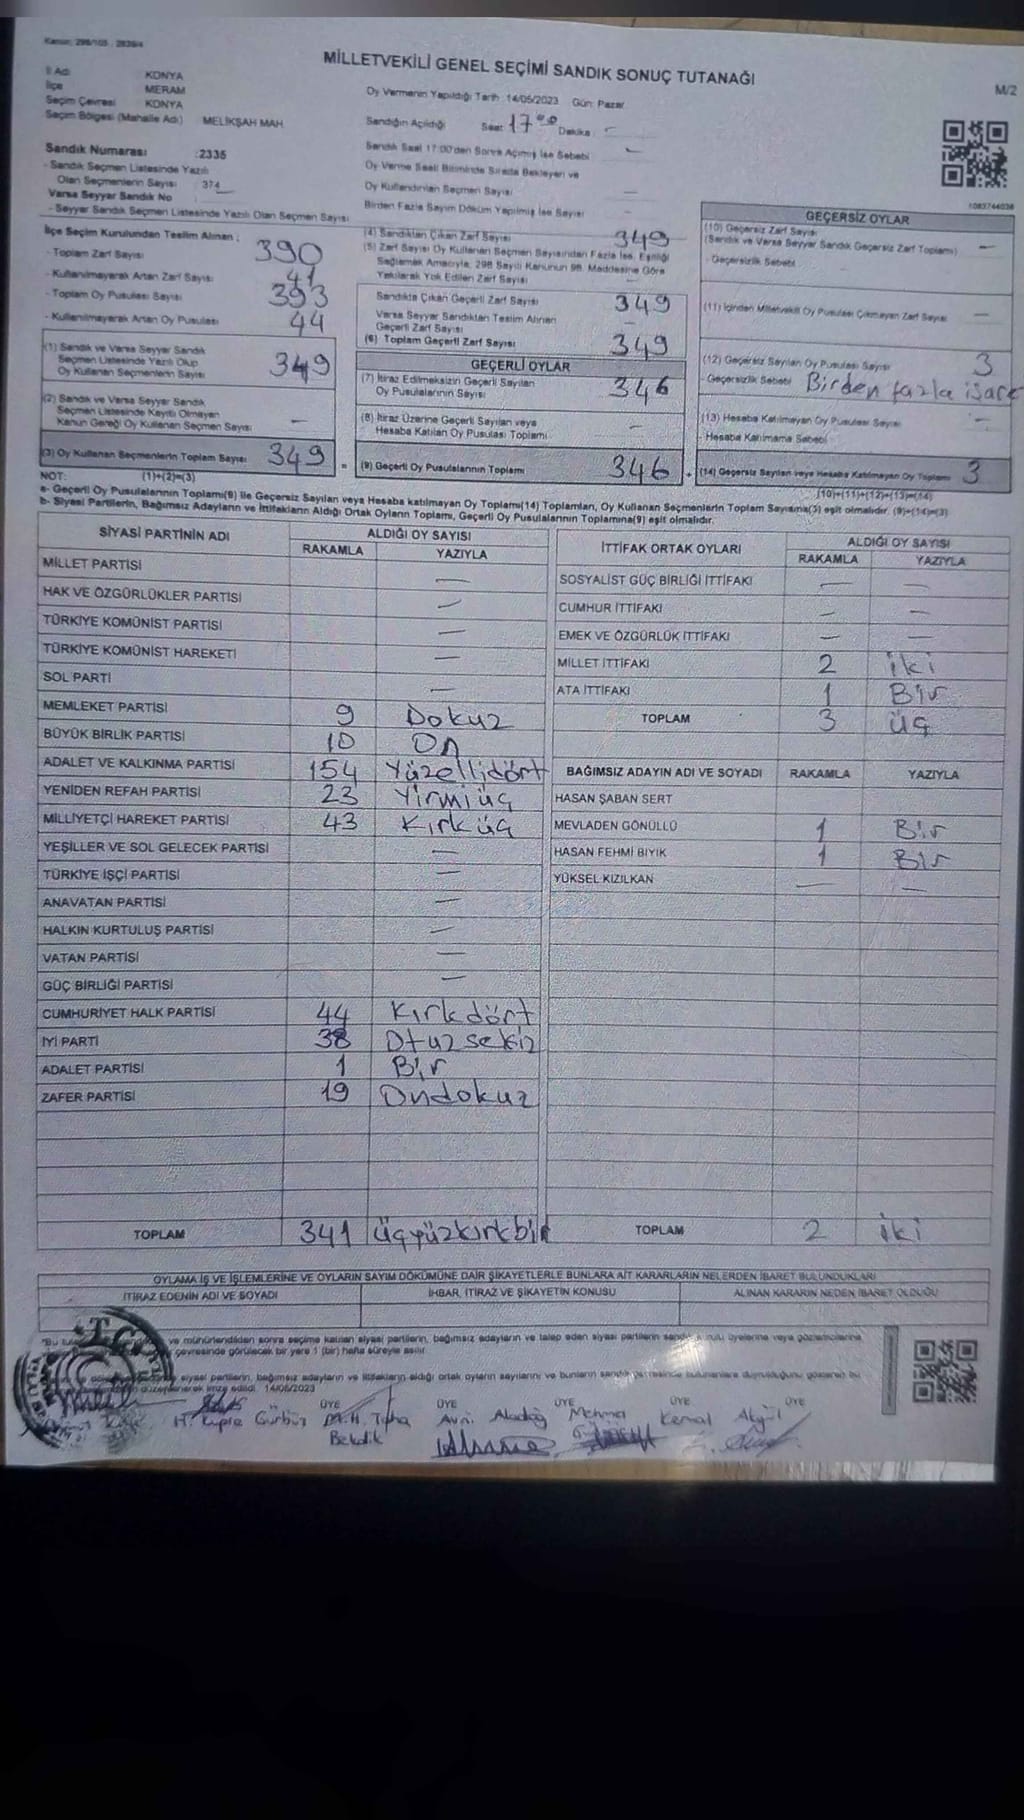 Kanun: 298/105 - 2839/4
MİLLETVEKİLİ GENEL SEÇİMİ SANDIK SONUÇ TUTANAĞI
M/2
İl Adı KONYA
İlçe MERAM
Seçim Çevresi KONYA
Seçim Bölgesi (Mahalle Adı) MELİKŞAH MAH.
Oy Vermenin Yapıldığı Tarih : 14/05/2023 Gün: Pazar
Sandığın Açıldığı Saat: 17 00 Dakika : -
Sandık Saat 17:00'den Sonra Açılmış İse Sebebi -
Oy Verme Saati Bitiminde Sırada Bekleyen ve
Oy Kullandırılan Seçmen Sayısı —
Birden Fazla Sayım Döküm Yapılmış İse Sayısı —
Sandık Numarası :2335
- Sandık Seçmen Listesinde Yazılı
Olan Seçmenlerin Sayısı : 374
Varsa Seyyar Sandık No —
- Seyyar Sandık Seçmen Listesinde Yazılı Olan Seçmen Sayısı
İlçe Seçim Kurulundan Teslim Alınan :
- Toplam Zarf Sayısı 390
- Kullanılmayarak Artan Zarf Sayısı 41
- Toplam Oy Pusulası Sayısı 393
- Kullanılmayarak Artan Oy Pusulası 44
(1) Sandık ve Varsa Seyyar Sandık
Seçmen Listesinde Yazılı Olup
Oy Kullanan Seçmenlerin Sayısı 349
(2) Sandık ve Varsa Seyyar Sandık
Seçmen Listesinde Kayıtlı Olmayan
Kanun Gereği Oy Kullanan Seçmen Sayısı —
(3) Oy Kullanan Seçmenlerin Toplam Sayısı 349
(4) Sandıktan Çıkan Zarf Sayısı 349
(5) Zarf Sayısı Oy Kullanan Seçmen Sayısından Fazla İse, Eşitliği
Sağlamak Amacıyla, 298 Sayılı Kanunun 98. Maddesine Göre
Yakılarak Yok Edilen Zarf Sayısı —
Sandıkta Çıkan Geçerli Zarf Sayısı 349
Varsa Seyyar Sandıktan Teslim Alınan
Geçerli Zarf Sayısı —
(6) Toplam Geçerli Zarf Sayısı 349
GEÇERLİ OYLAR
(7) İtiraz Edilmeksizin Geçerli Sayılan
Oy Pusulalarının Sayısı 346
(8) İtiraz Üzerine Geçerli Sayılan veya
Hesaba Katılan Oy Pusulası Toplamı —
= (9) Geçerli Oy Pusulalarının Toplamı 346
1083744036
GEÇERSİZ OYLAR
(10) Geçersiz Zarf Sayısı —
(Sandık ve Varsa Seyyar Sandık Geçersiz Zarf Toplamı)
- Geçersizlik Sebebi
(11) İçinden Milletvekili Oy Pusulası Çıkmayan Zarf Sayısı —
(12) Geçersiz Sayılan Oy Pusulası Sayısı 3
- Geçersizlik Sebebi Birden fazla işare
(13) Hesaba Katılmayan Oy Pusulası Sayısı —
- Hesaba Katılmama Sebebi
+ (14) Geçersiz Sayılan veya Hesaba Katılmayan Oy Toplamı 3
NOT: (1)+(2)=(3) (10)+(11)+(12)+(13)=(14)
a- Geçerli Oy Pusulalarının Toplamı(9) ile Geçersiz Sayılan veya Hesaba katılmayan Oy Toplamı(14) Toplamları, Oy Kullanan Seçmenlerin Toplam Sayısına(3) eşit olmalıdır. (9)+(14)=(3)
b- Siyasi Partilerin, Bağımsız Adayların ve İttifakların Aldığı Ortak Oyların Toplamı, Geçerli Oy Pusulalarının Toplamına(9) eşit olmalıdır.
SİYASİ PARTİNİN ADI ALDIĞI OY SAYISI
RAKAMLA YAZIYLA
MİLLET PARTİSİ —
HAK VE ÖZGÜRLÜKLER PARTİSİ —
TÜRKİYE KOMÜNİST PARTİSİ —
TÜRKİYE KOMÜNİST HAREKETİ —
SOL PARTİ —
MEMLEKET PARTİSİ 9 Dokuz
BÜYÜK BİRLİK PARTİSİ 10 On
ADALET VE KALKINMA PARTİSİ 154 Yüzellidört
YENİDEN REFAH PARTİSİ 23 Yirmiüç
MİLLİYETÇİ HAREKET PARTİSİ 43 Kırküç
YEŞİLLER VE SOL GELECEK PARTİSİ —
TÜRKİYE İŞÇİ PARTİSİ —
ANAVATAN PARTİSİ —
HALKIN KURTULUŞ PARTİSİ —
VATAN PARTİSİ —
GÜÇ BİRLİĞİ PARTİSİ —
CUMHURİYET HALK PARTİSİ 44 Kırkdört
İYİ PARTİ 38 Otuzsekiz
ADALET PARTİSİ 1 Bir
ZAFER PARTİSİ 19 Ondokuz
TOPLAM 341 üçyüzkırkbir
İTTİFAK ORTAK OYLARI ALDIĞI OY SAYISI
RAKAMLA YAZIYLA
SOSYALİST GÜÇ BİRLİĞİ İTTİFAKI — —
CUMHUR İTTİFAKI — —
EMEK VE ÖZGÜRLÜK İTTİFAKI — —
MİLLET İTTİFAKI 2 iki
ATA İTTİFAKI 1 Bir
TOPLAM 3 üç
BAĞIMSIZ ADAYIN ADI VE SOYADI RAKAMLA YAZIYLA
HASAN ŞABAN SERT
MEVLADEN GÖNÜLLÜ 1 Bir
HASAN FEHMİ BIYIK 1 Bir
YÜKSEL KIZILKAN — —
TOPLAM 2 iki
OYLAMA İŞ VE İŞLEMLERİNE VE OYLARIN SAYIM DÖKÜMÜNE DAİR ŞİKAYETLERLE BUNLARA AİT KARARLARIN NELERDEN İBARET BULUNDUKLARI
İTİRAZ EDENİN ADI VE SOYADI İHBAR, İTİRAZ VE ŞİKAYETİN KONUSU ALINAN KARARIN NEDEN İBARET OLDUĞU
*Bu ve mühürlendikten sonra seçime katılan siyasi partilerin, bağımsız adayların ve talep eden siyasi partilerin üyelerine veya gözlemcilerine
çevresinde görülecek bir yere 1 (bir) hafta süreyle asılır.
siyasi partilerin, bağımsız adayların ve ittifakların aldığı ortak oyların sayılarını ve bunların
düzenlenerek imza edildi. 14/05/2023
ÜYE ÜYE ÜYE ÜYE ÜYE
Gürbüz M. Taha Avni Aladağ Kemal Akgül
Bekdik
T.C.